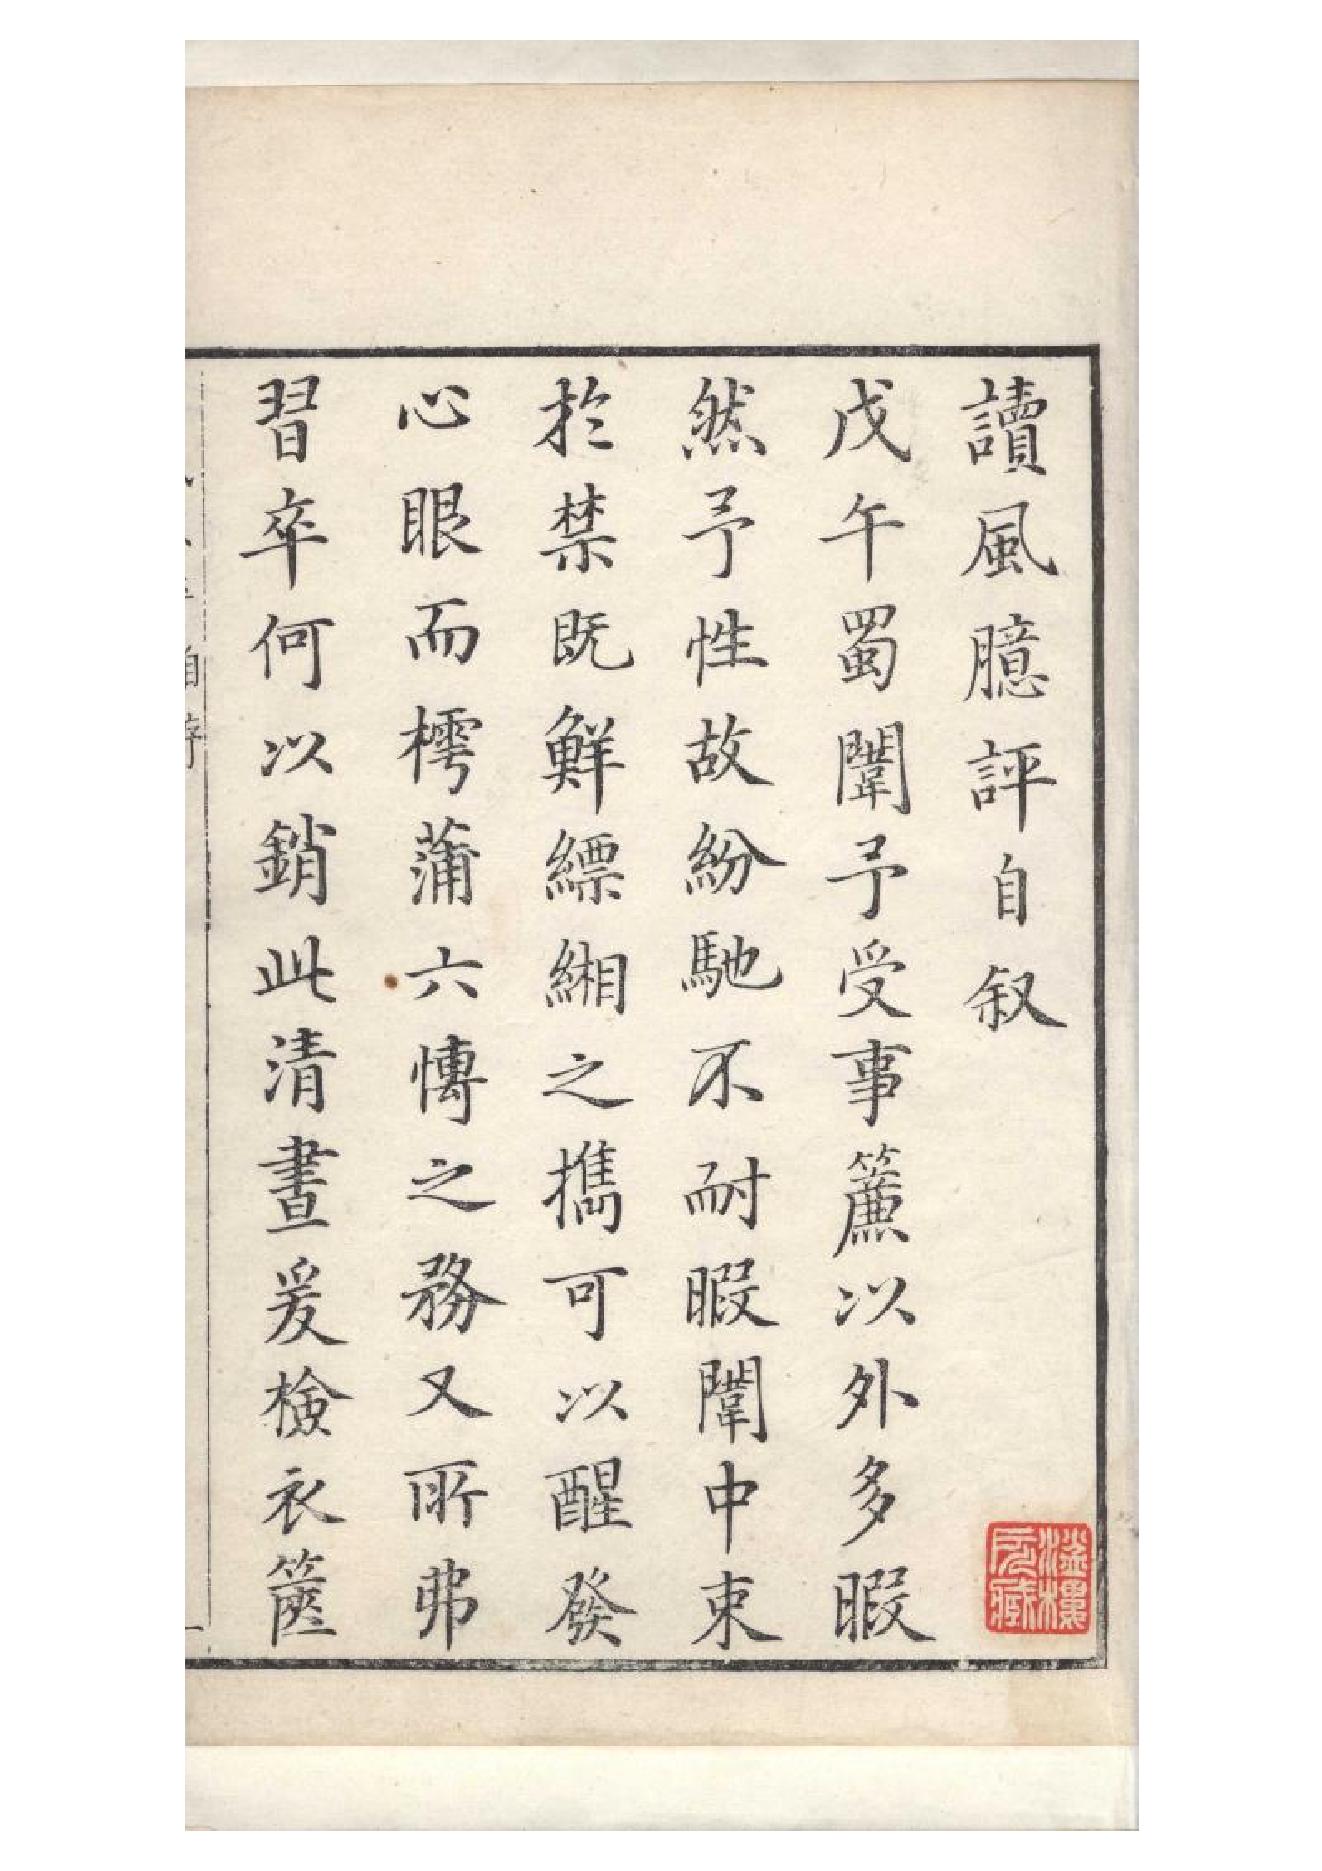 讀風臆評自叙
戊午蜀闈予受事簾以外多暇
然予性故紛馳不耐暇闈中束
於禁既鮮縹緗之擕可以醒發
心眼而樗蒲六慱之務又所弗
習卒何以銷此清晝爰檢衣篋